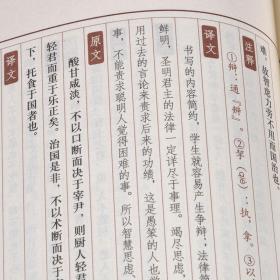 难，故智虑力劳不用而国治也
注释
：通“辩”。②：执，拿。③以
译文
书写的内容简约，学生就容易产生争辩；法律简
鲜明，圣明君主的法律一定详尽于事理。竭尽思虑，
用过去的言论来责求后来的功绩，这是愚笨的人也觉
事，不能责求聪明人觉得困难的事。所以智慧思虑、
原文
酸甘咸淡，不以口断而决于宰尹，则厨人轻君
轻君而重于乐正矣。治国是非，不以术断而决于
下，托食于国者也。
译文